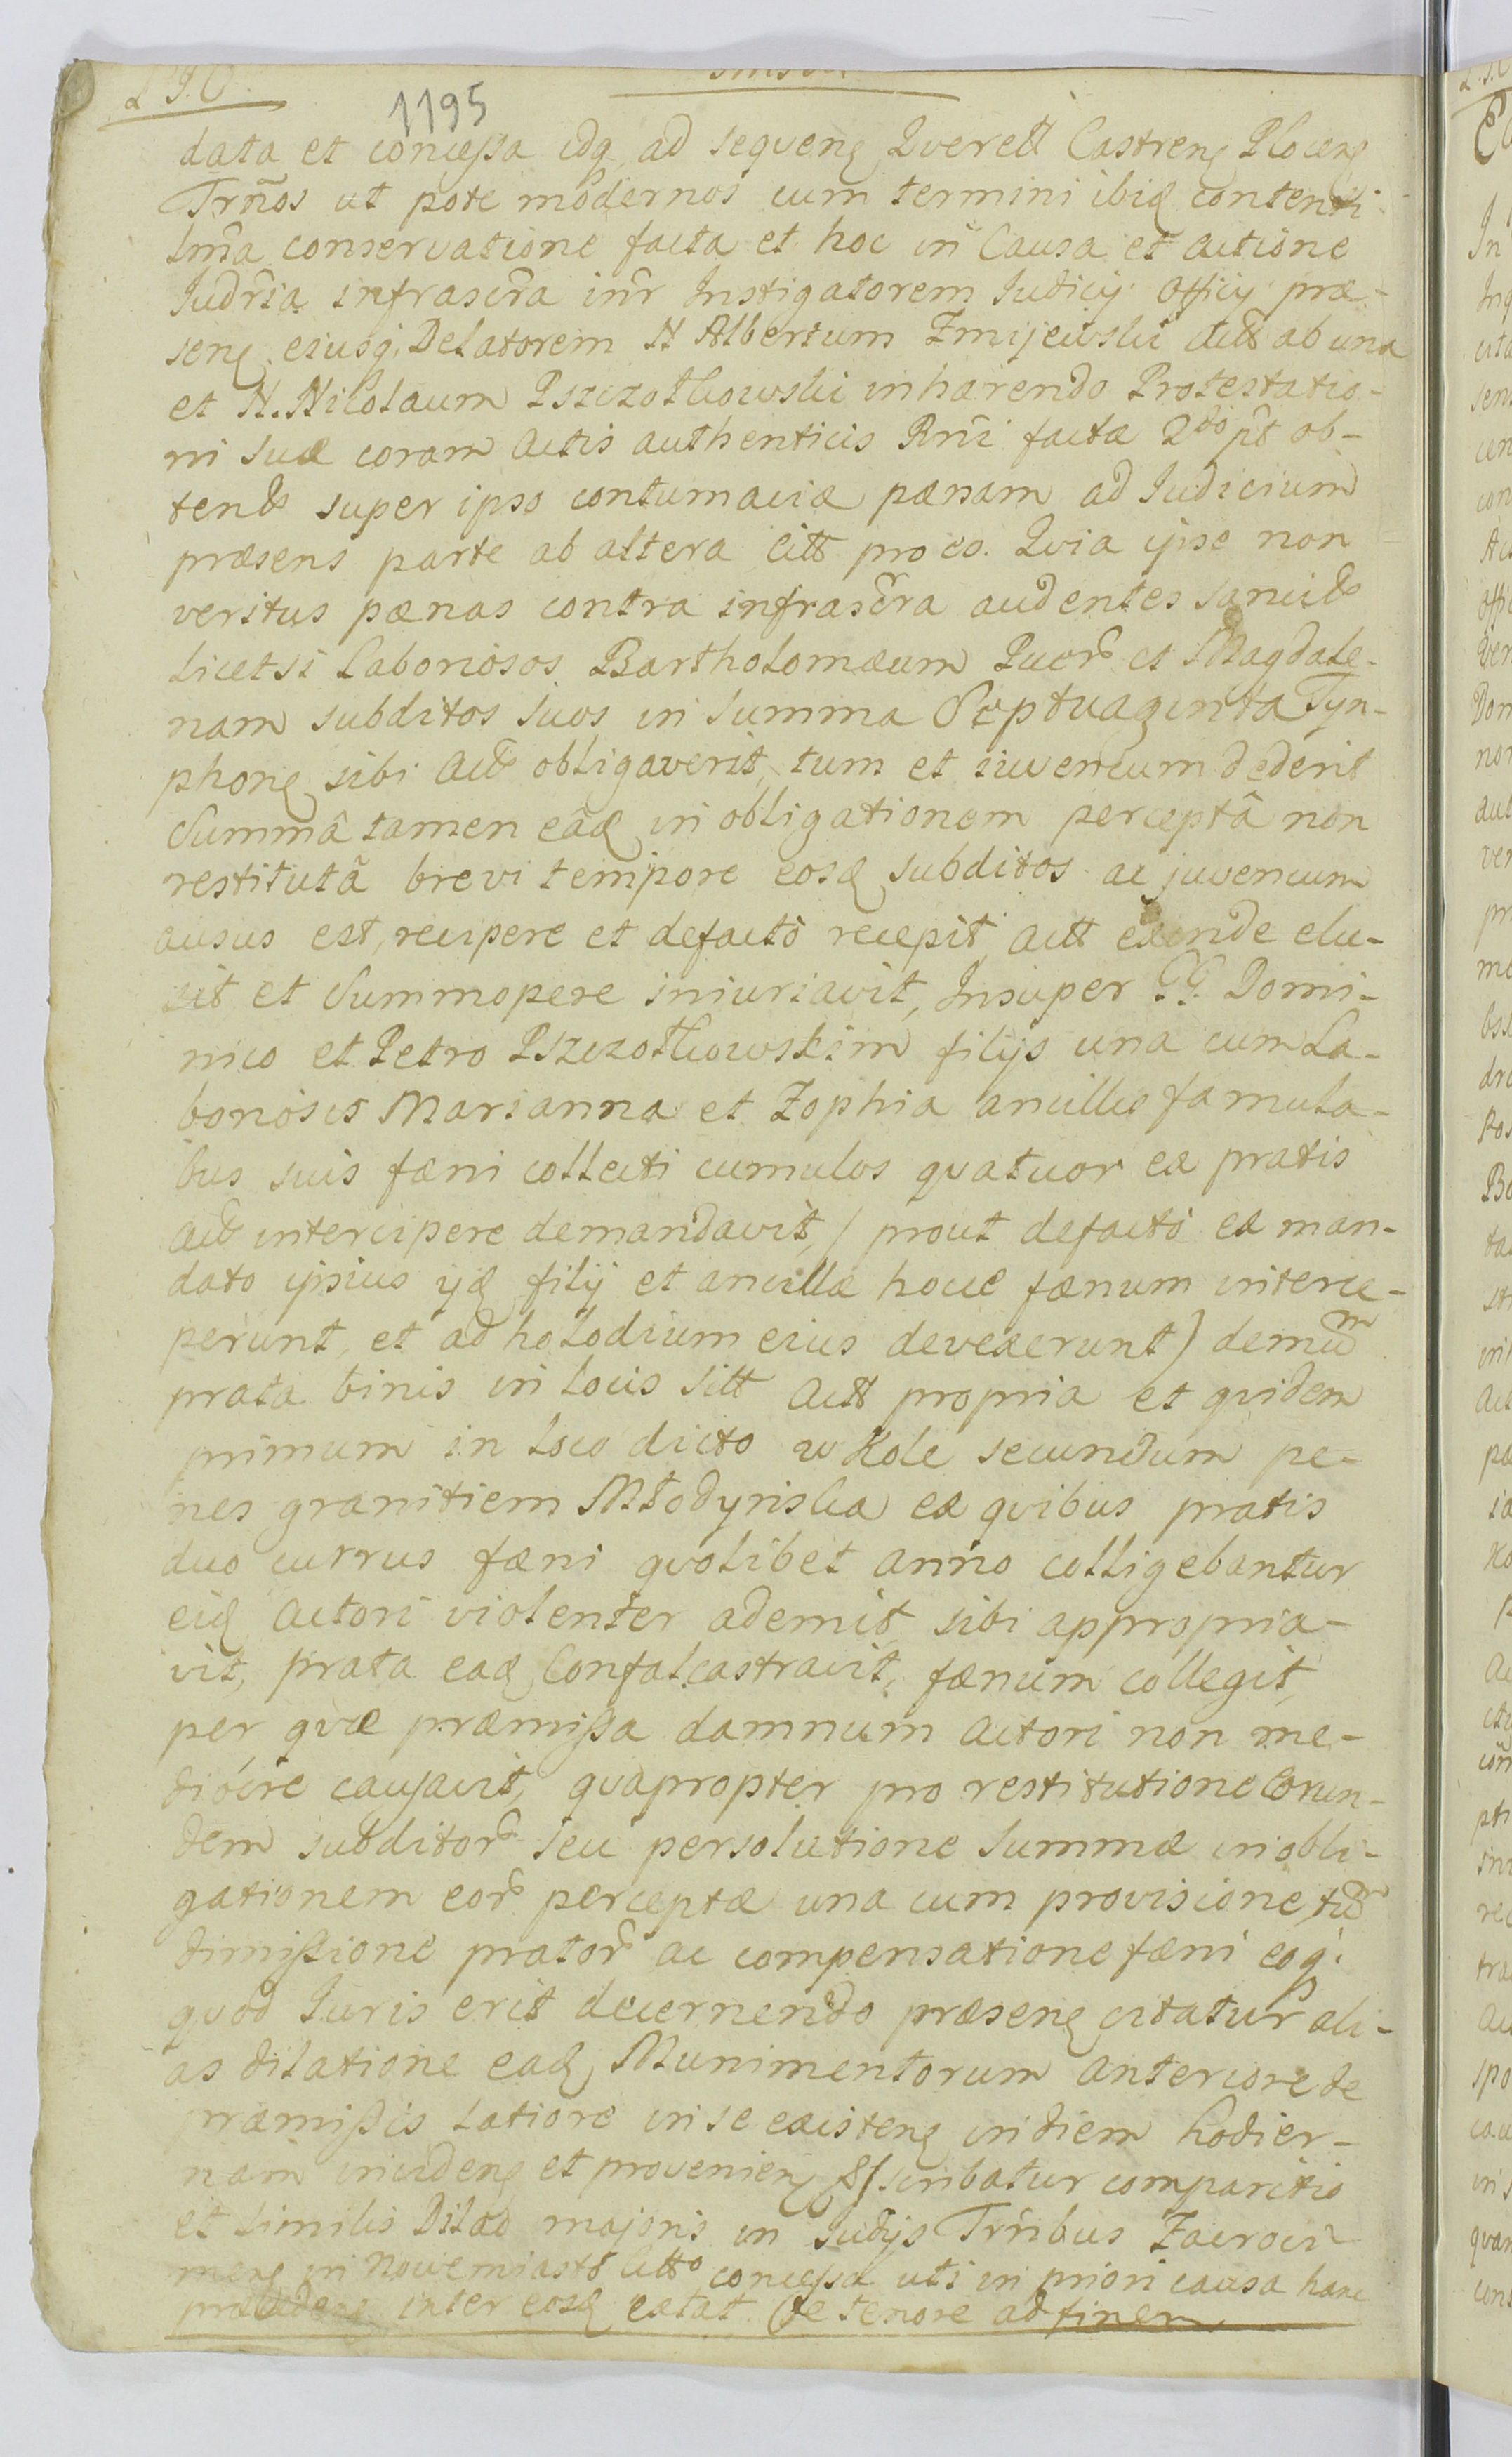 L I. C.
1195
data et concessa idq ad seqvenę Qverell Castrenę Plocenę
Trm̃os ut pote modernos cum termini ibiq contenti
lm̃a conservatione facta et hoc in Causa et actione
Judr̃ia infrascr̃a inr̃ Instigatorem Iudicij Officij præ-
senę eiusq Delatorem N Albertum Zmijewski Actt ab una
et N. Nicolaum Pszczołkowski inhærendo Protestatio-
ni suæ coram Actis authenticis Rnĩ factæ 2do pt ob-
tends super ipso contumaciæ pænam ad Iudicium
præsens parte ab altera Citt pro eo. Qvia ipse non
veritus pænas contra infrascr̃a audentes sancits
licet si Laboriosos Bartholomæum Puer et Magdale-
nam subditos suos in summa Septuaginta Tyn-
phonę sibi Act obligaverit, tum et iuvencum dederit
Summâ tamen eâdę in obligationem perceptâ non
restitutâ brevi tempore eosdę subditos ac juvencum
ausus est, recipere et defacto recepit, Actt exinde elu-
sit et Summopere iniuriavit, Insuper GG. Domi-
nico et Petro Pszczołkowskim filijs una cum La-
boriosis Marianna et Zophia ancillis famula-
bus suis fæni collecti cumulos qvatuor ex pratis
Act intercipere demandavit, / prout defacto ex man-
dato ipsius ijdę filij et ancillæ hocce fænum interce-
perunt, et ad holodium eius devexerunt) demum
prata binis in locis sitt Actt propria et qvidem
primum in loco dicto w Kole secundum pe-
nes granitiem Młodynska ex qvibus pratis
duo currus fæni qvolibet anno colligebantur
eidę Actori violenter ademit, sibi appropria-
vit, prata eadę Confalcastravit, fænum collegit,
per qvæ præmissa damnum Actori non me-
diocre causavit, qvapropter pro restitutione Eorun-
dem subditor seu persolutione summæ in obli-
gationem eor perceptæ una cum provisione, tum
dimissione prator ac compensatione fæni eoq
qvod Iuris erit decernendo præsenę citatur ali-
as dilatione eadę Munimentorum anteriore de
præmissis latiore in se existenę in diem hodier-
nam incidenę et provenienę Asscribatur comparitio
et similis Dilao majoris in Iudijs Trm̃ibus Zacroci-
menę in Nowemiasto Citto concessa uti in priori causa hanc
præcedenę inter eosdę extat de tenore ad finem